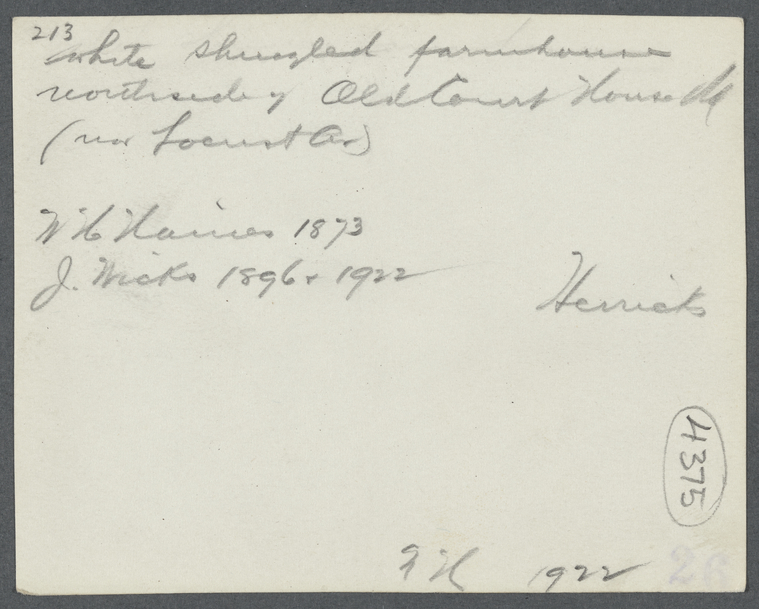 213
white shingled farmhouse
northside of Old Court House Rd
(nr Locust Av)
W H Haines 1873
J. Wicks 1896 + 1922
Herricks
4375
1922
26